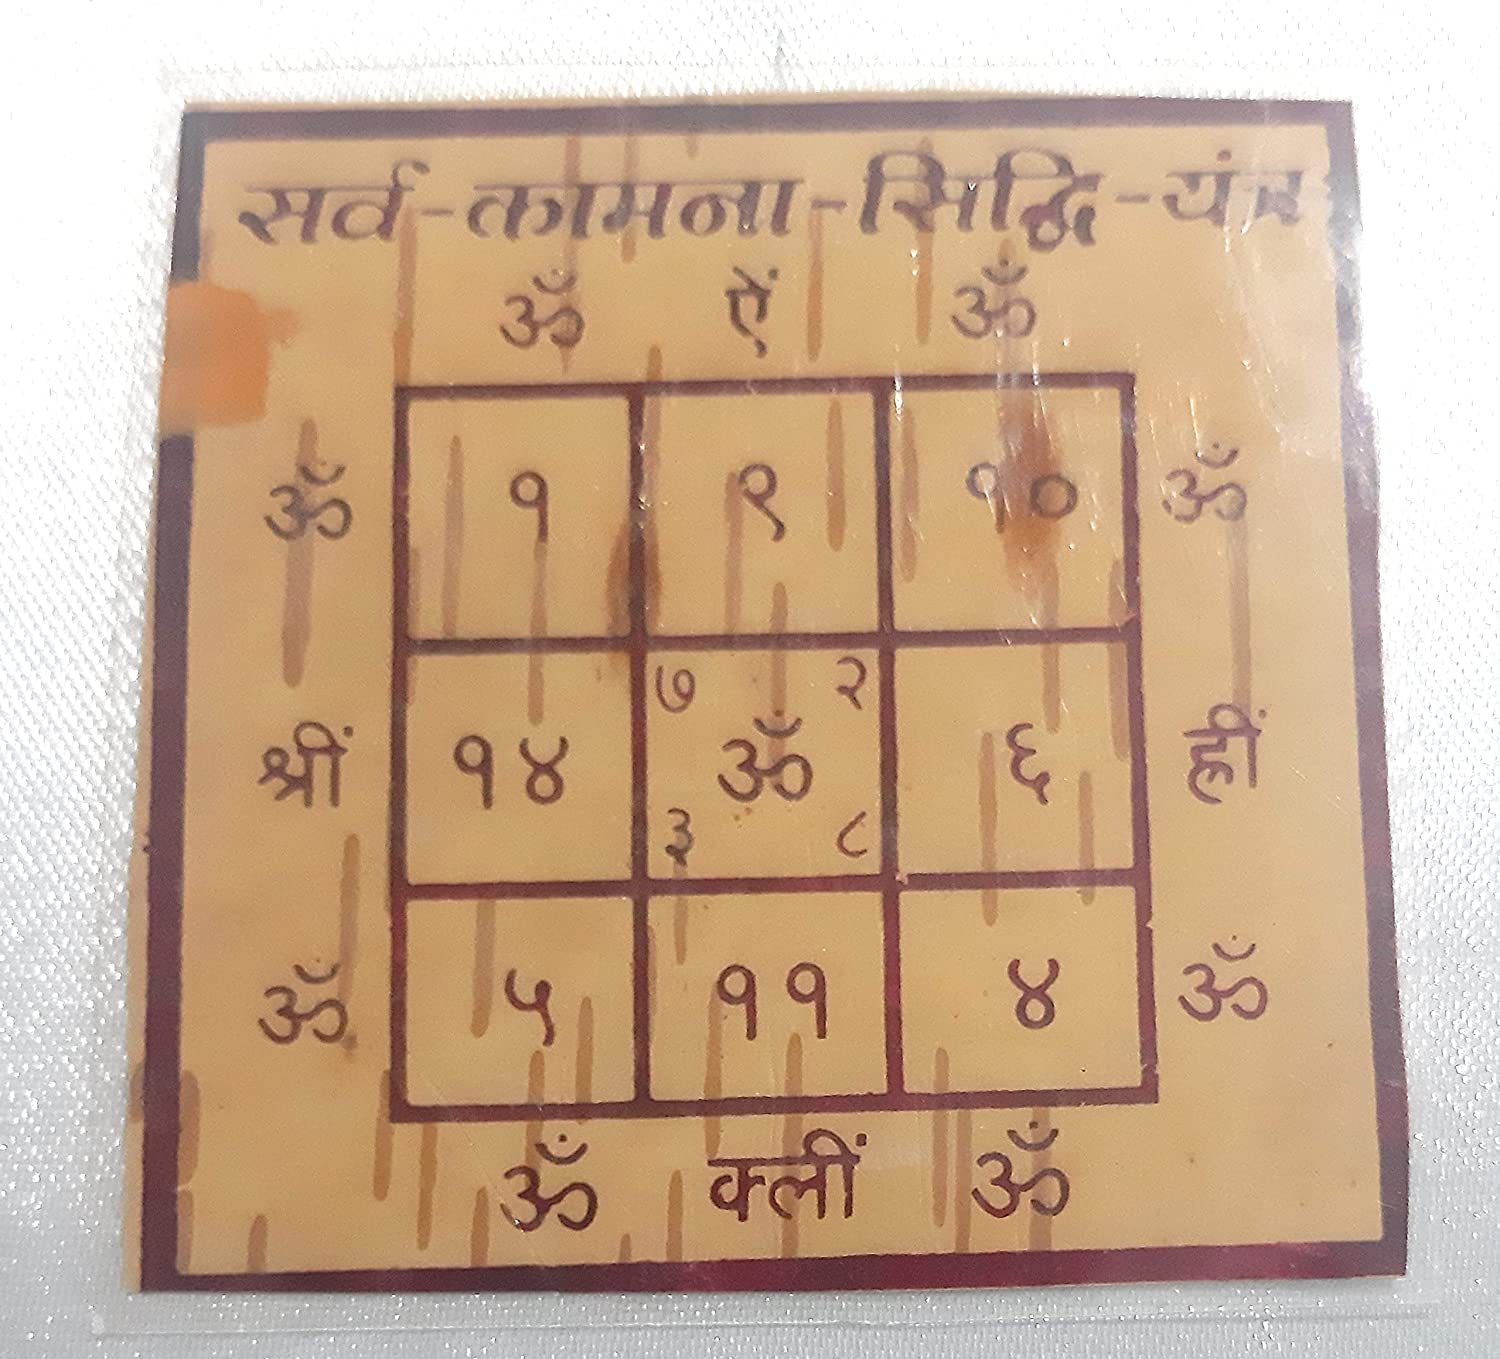 सर्व-कामना-सिद्धि-यंत्र
ॐ ऐं ॐ
ॐ १ ९ १० ॐ
७ २
श्रीं १४ ॐ ६ ह्रीं
३ ८
ॐ ५ ११ ४ ॐ
ॐ क्लीं ॐ